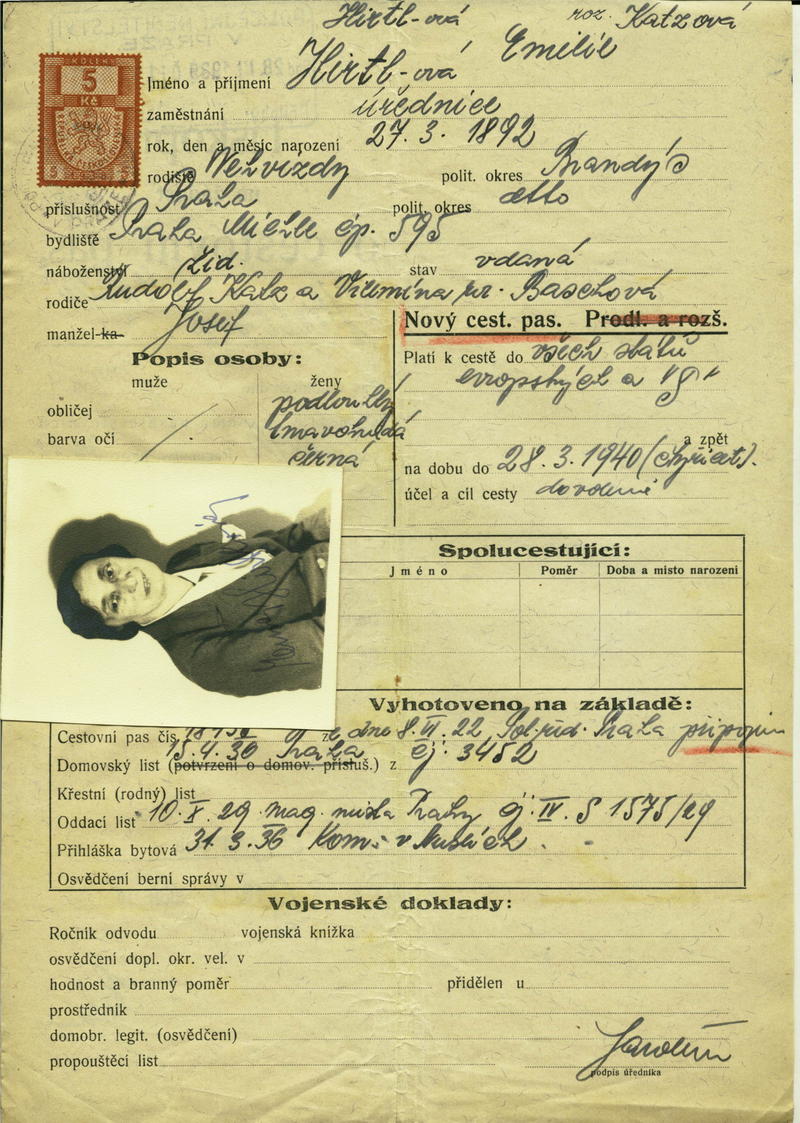 Hirtl-ová roz. Katzová
KOLEK
5
Kč
Jméno a příjmení Hirtl-ová Emilie
zaměstnání úřednice
rok, den a měsíc narození 27. 3. 1892
rodiště Nehvizdy polit. okres Brandýs
příslušnost Praha polit. okres detto
bydliště Praha Michle čp. 595
náboženství žid. stav vdaná
rodiče Rudolf Katz a Vilemína roz. Baschová
manžel-ka- Josef
Nový cest. pas. Prodl. a rozš.
Popis osoby:
Platí k cestě do všech států
muže ženy
evropských a "S"
obličej podlouhlý
barva očí tmavohnědá
černá
a zpět
na dobu do 28. 3. 1940 (čtyřicet).
účel a cíl cesty dovolená
Spolucestující:
Jméno Poměr Doba a místo narození
Vyhotoveno na základě:
Cestovní pas čís. ze dne 8. VI. 22, Pol. řed. Praha připojen
15. 4. 30 Praha čj. 3452
Domovský list (potvrzení o domov. přísluš.) z
Křestní (rodný) list
Oddací list 10. X. 29 mag. města Prahy čj. IV. S 1575/29
Přihláška bytová 31. 3. 36 Kom. v Nuslích.
Osvědčení berní správy v
Vojenské doklady:
Ročník odvodu vojenská knížka
osvědčení dopl. okr. vel. v
hodnost a branný poměr přidělen u
prostředník
domobr. legit. (osvědčení)
propouštěcí list
podpis úředníka